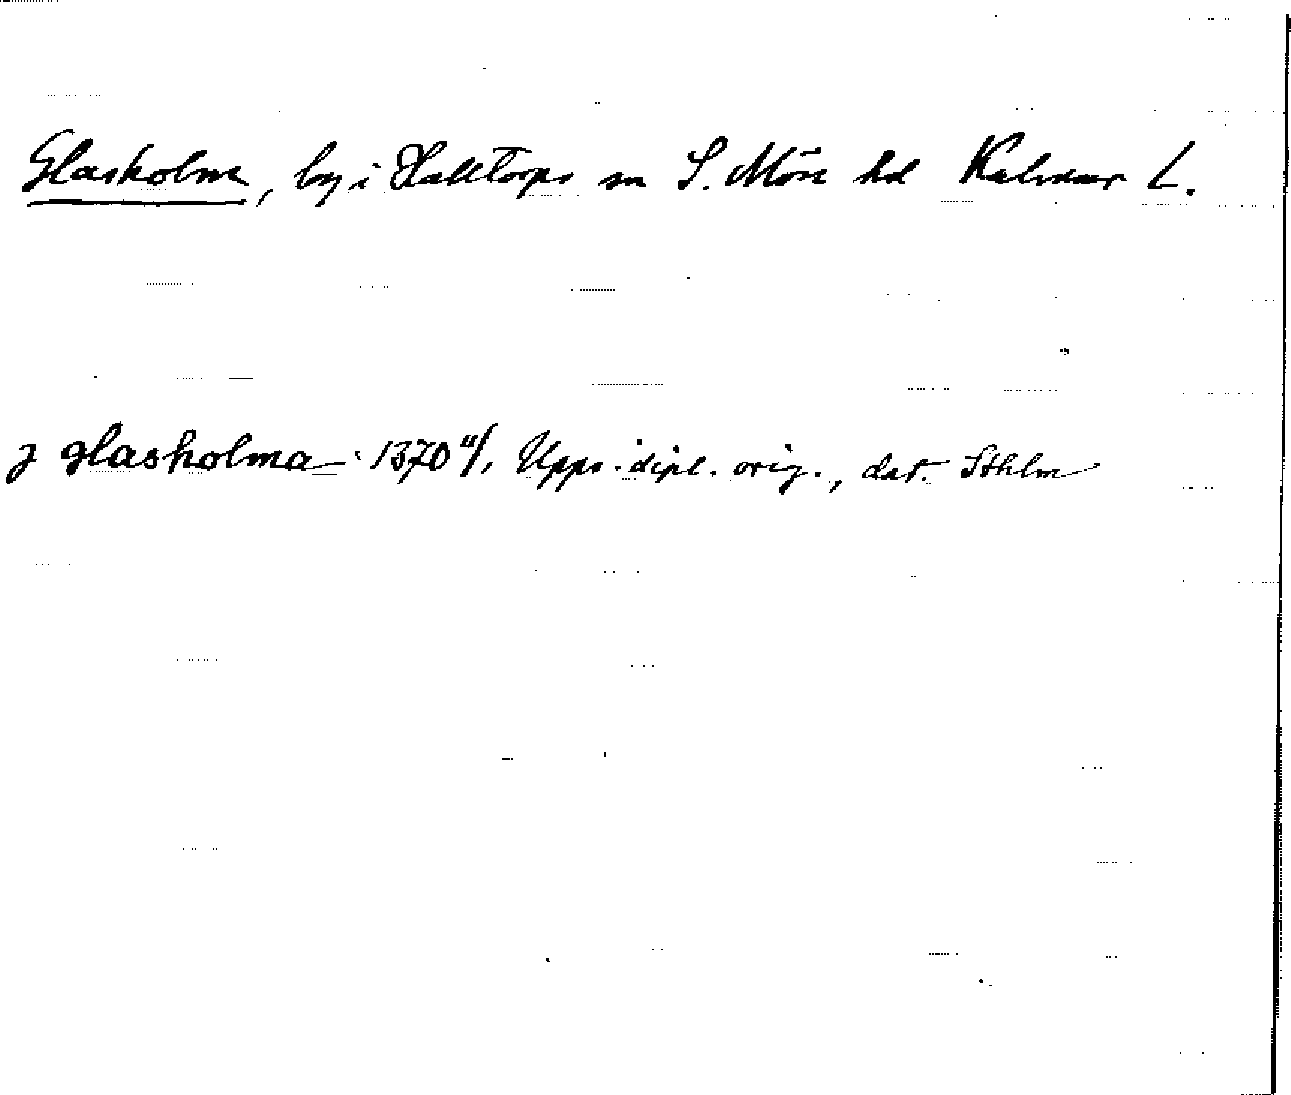 Glasholm, by i Halltorps sn S. Möre hd Kalmar L.
j glasholma 1370 Upps. dipl. orig., dat. Sthlm